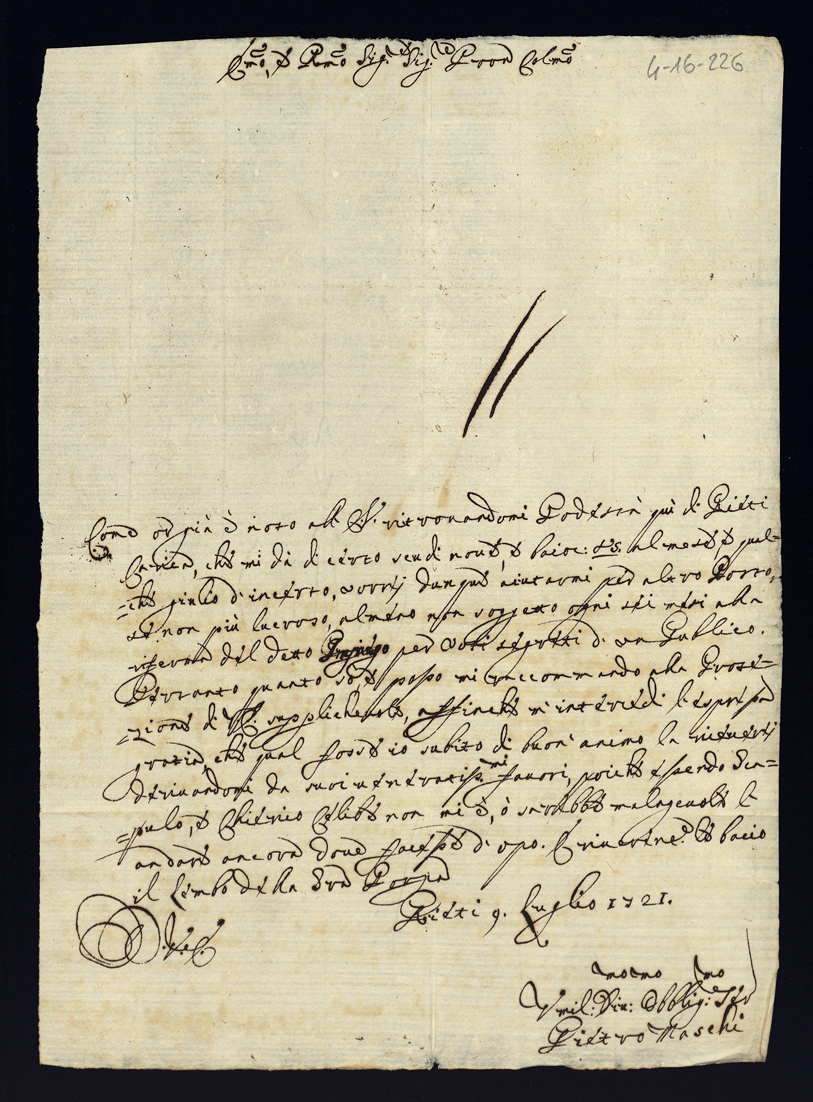 Emo, e Rmo Sig.r Sig.r e Pron Colmo
4-16-226
Come or già è noto all' E. V. ritrovandomi Podestà qui di Rieti
Carica, che mi dà di certo scudi nove, e baioc: 25 al mese, e qual=
=che giulio d'incerto, vorrei dunque aiutarmi per altro Posto,
se non più lucroso, almeno non soggetto ogni sei mesi alla
riserva del detto Impiego per voti segreti di un Publico.
Pertanto quanto so, e posso mi raccommando alla Prote=
=zione di V. E. supplichevole, affinche m'interceda l'espressa
gratia, che qual fosse io subito di buon' animo la riceverei
derivandomi da suoi inveteratiss.mi favori, poiche essendo Sca=
=pulo, e Chierico Celibe non mi è, ò sarebbe malagevole l'
andare ancora dove facesse d'vopo. E riverente le bacio
il Lembo della Sra Porpa
Rieti 9. Luglio 1721.
D. V. E.
Vmil:mo Div:mo Obblig:mo Ser
Pietro Maschi